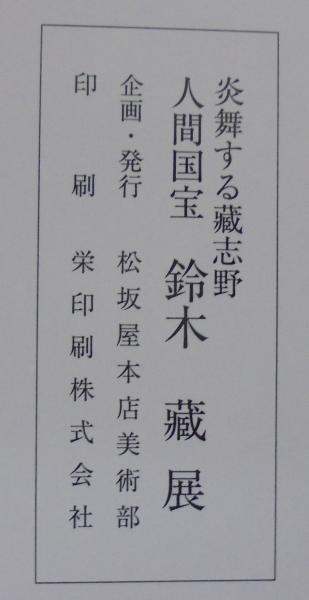 炎舞する藏志野
人間国宝 鈴木 藏 展
企画・発行 松坂屋本店美術部
印刷 栄印刷株式会社